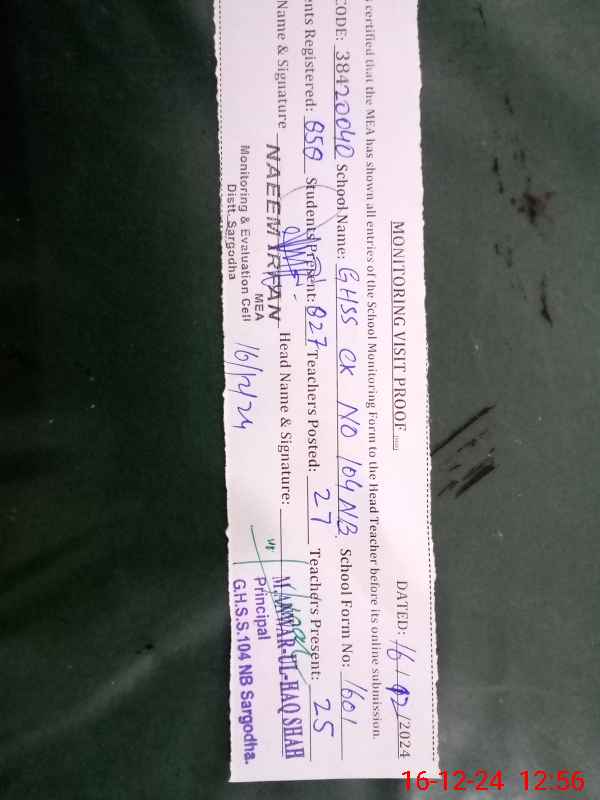 MONITORING VISIT PROOF DATED: 16/12/2024
s certified that the MEA has shown all entries of the School Monitoring Form to the Head Teacher before its online submission.
CODE: 38420040 School Name: GHSS CK NO 104NB. School Form No: 1601
ents Registered: 850 Students Present: 827 Teachers Posted: 27 Teachers Present: 25
Name & Signature NAEEM IRFAN Head Name & Signature: M.ANWAR-UL-HAQ SHAH
MEA
Monitoring & Evaluation Cell
Distt. Sargodha
16/12/24
Principal
G.H.S.S.104 NB Sargodha.
16-12-24 12:56